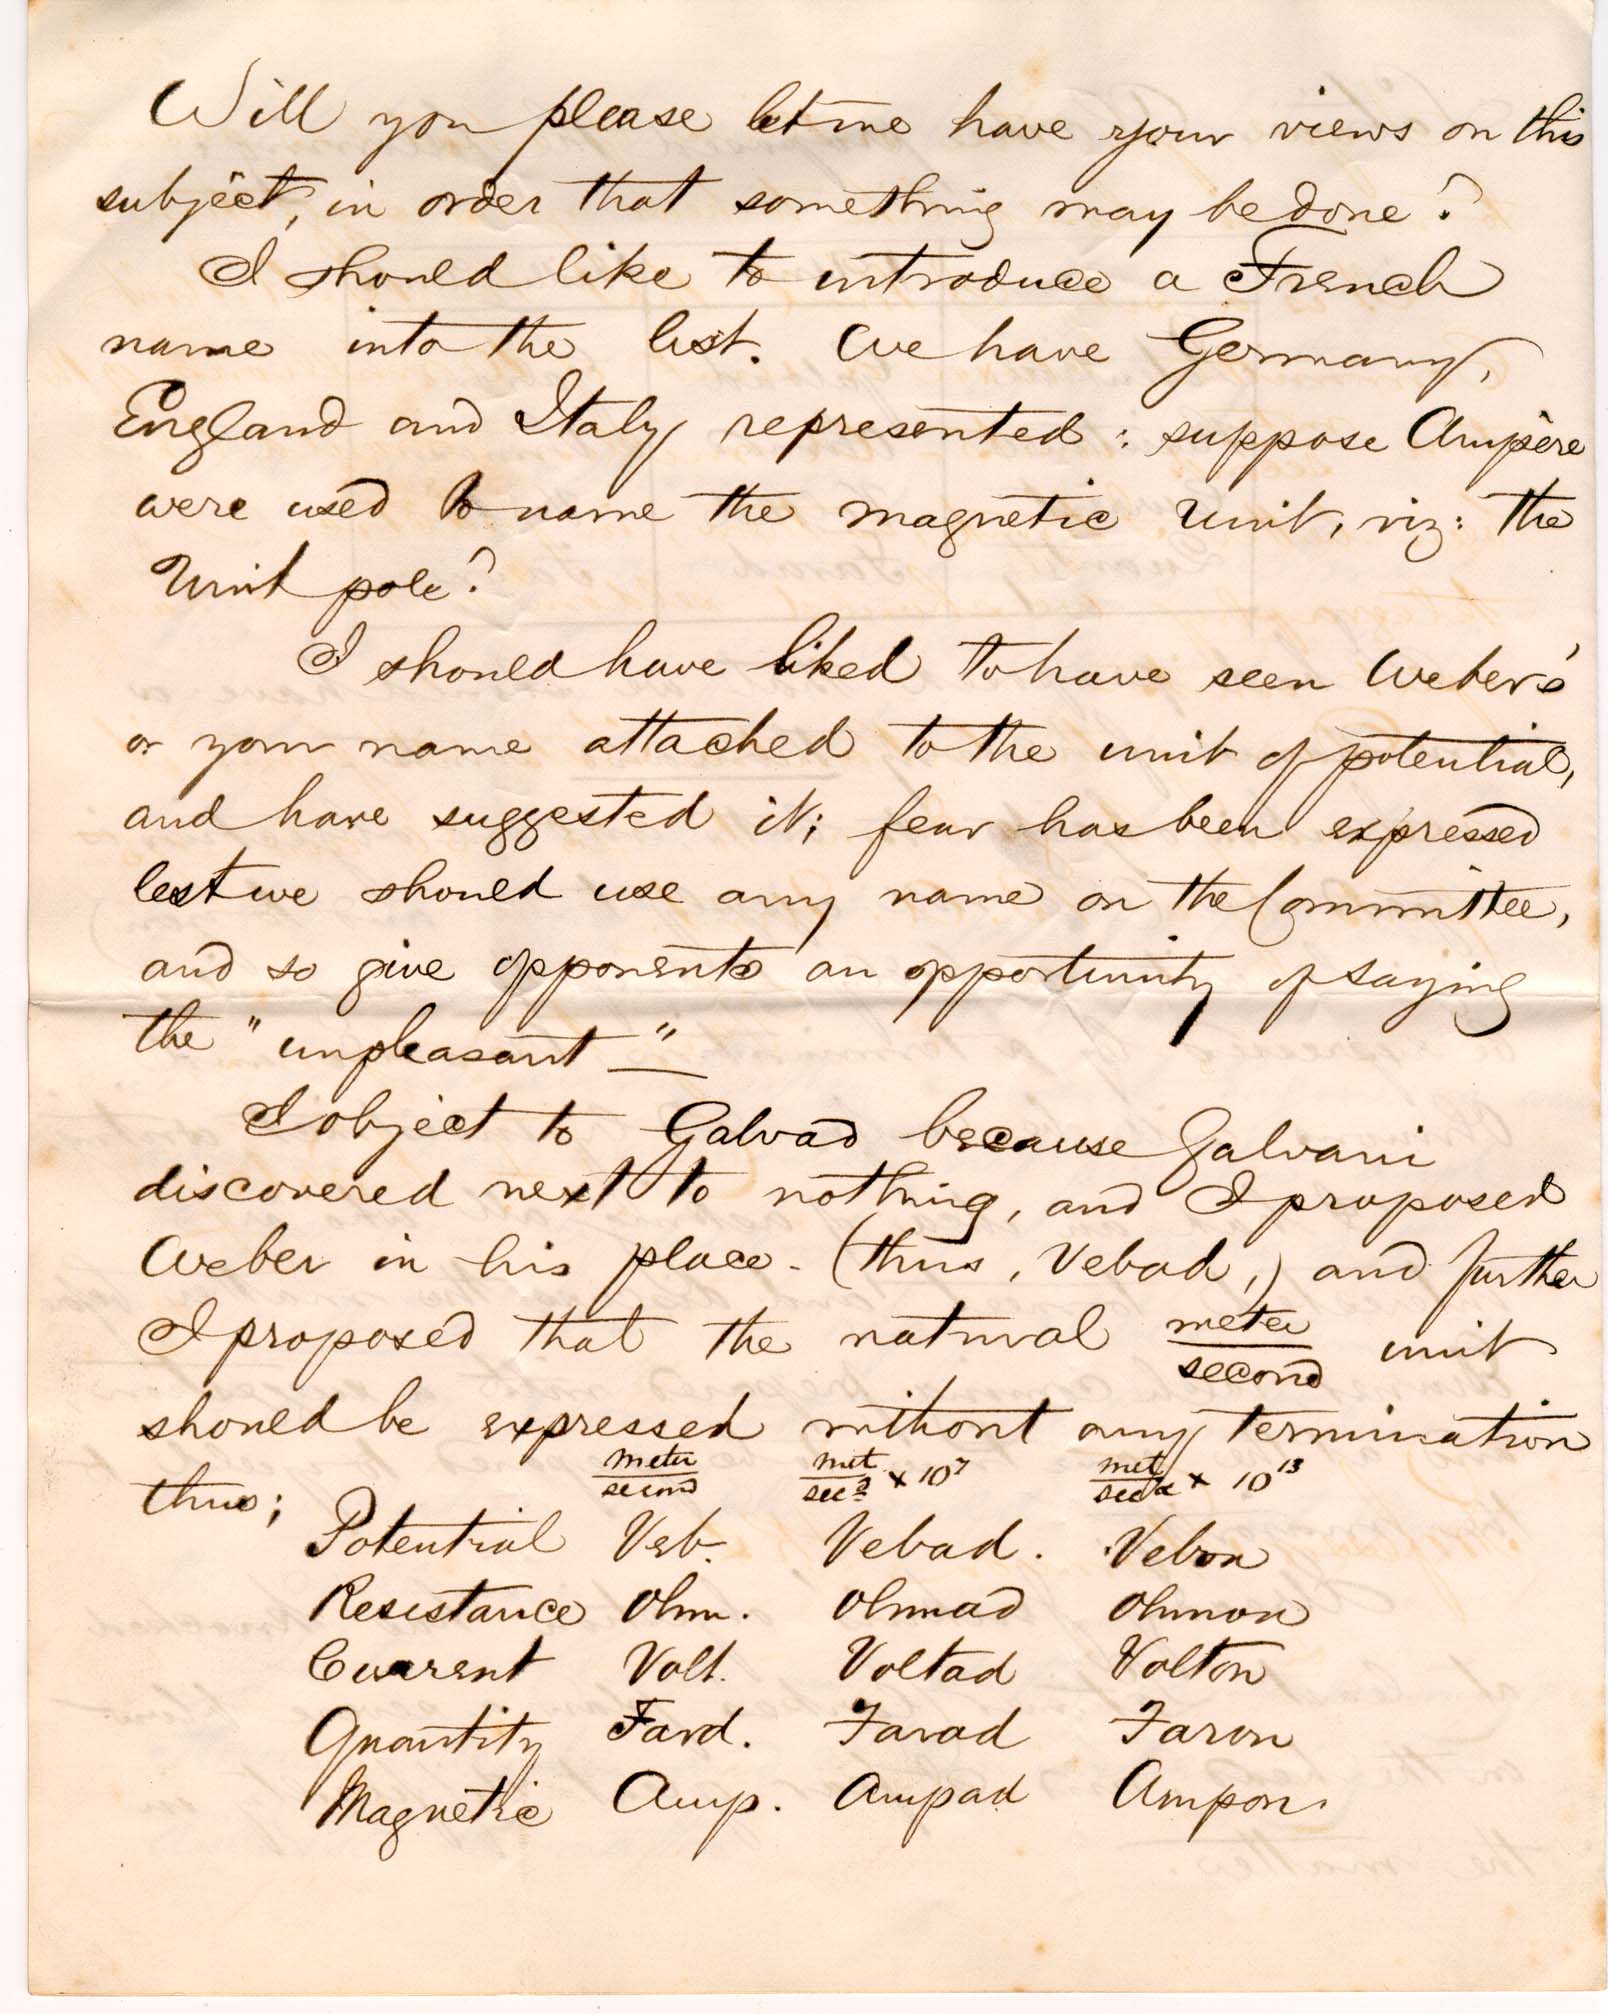 Will you please let me have your views on this
subject, in order that something may be done?
I should like to introduce a French
name into the list. We have Germany,
England and Italy represented: suppose Ampère
were used to name the magnetic Unit, viz: the
Unit pole?
I should have liked to have seen Weber's
or your name attached to the unit of potential,
and have suggested it; fear has been expressed
lest we should use any name on the Committee,
and so give opponents an opportunity of saying
the "unpleasant—"
I object to Galvad because Galvani
discovered next to nothing, and I proposed
Weber in his place - (thus, Vebad,) and further
I proposed that the natural meter/second unit
should be expressed without any termination
thus; meter/second met/sec² × 10⁷ met/sec² × 10¹³
Potential Veb. Vebad. Vebon
Resistance Ohm. Ohmad Ohmon
Current Volt. Voltad Volton
Quantity Fard. Farad Faron
Magnetic Amp. Ampad Ampon.